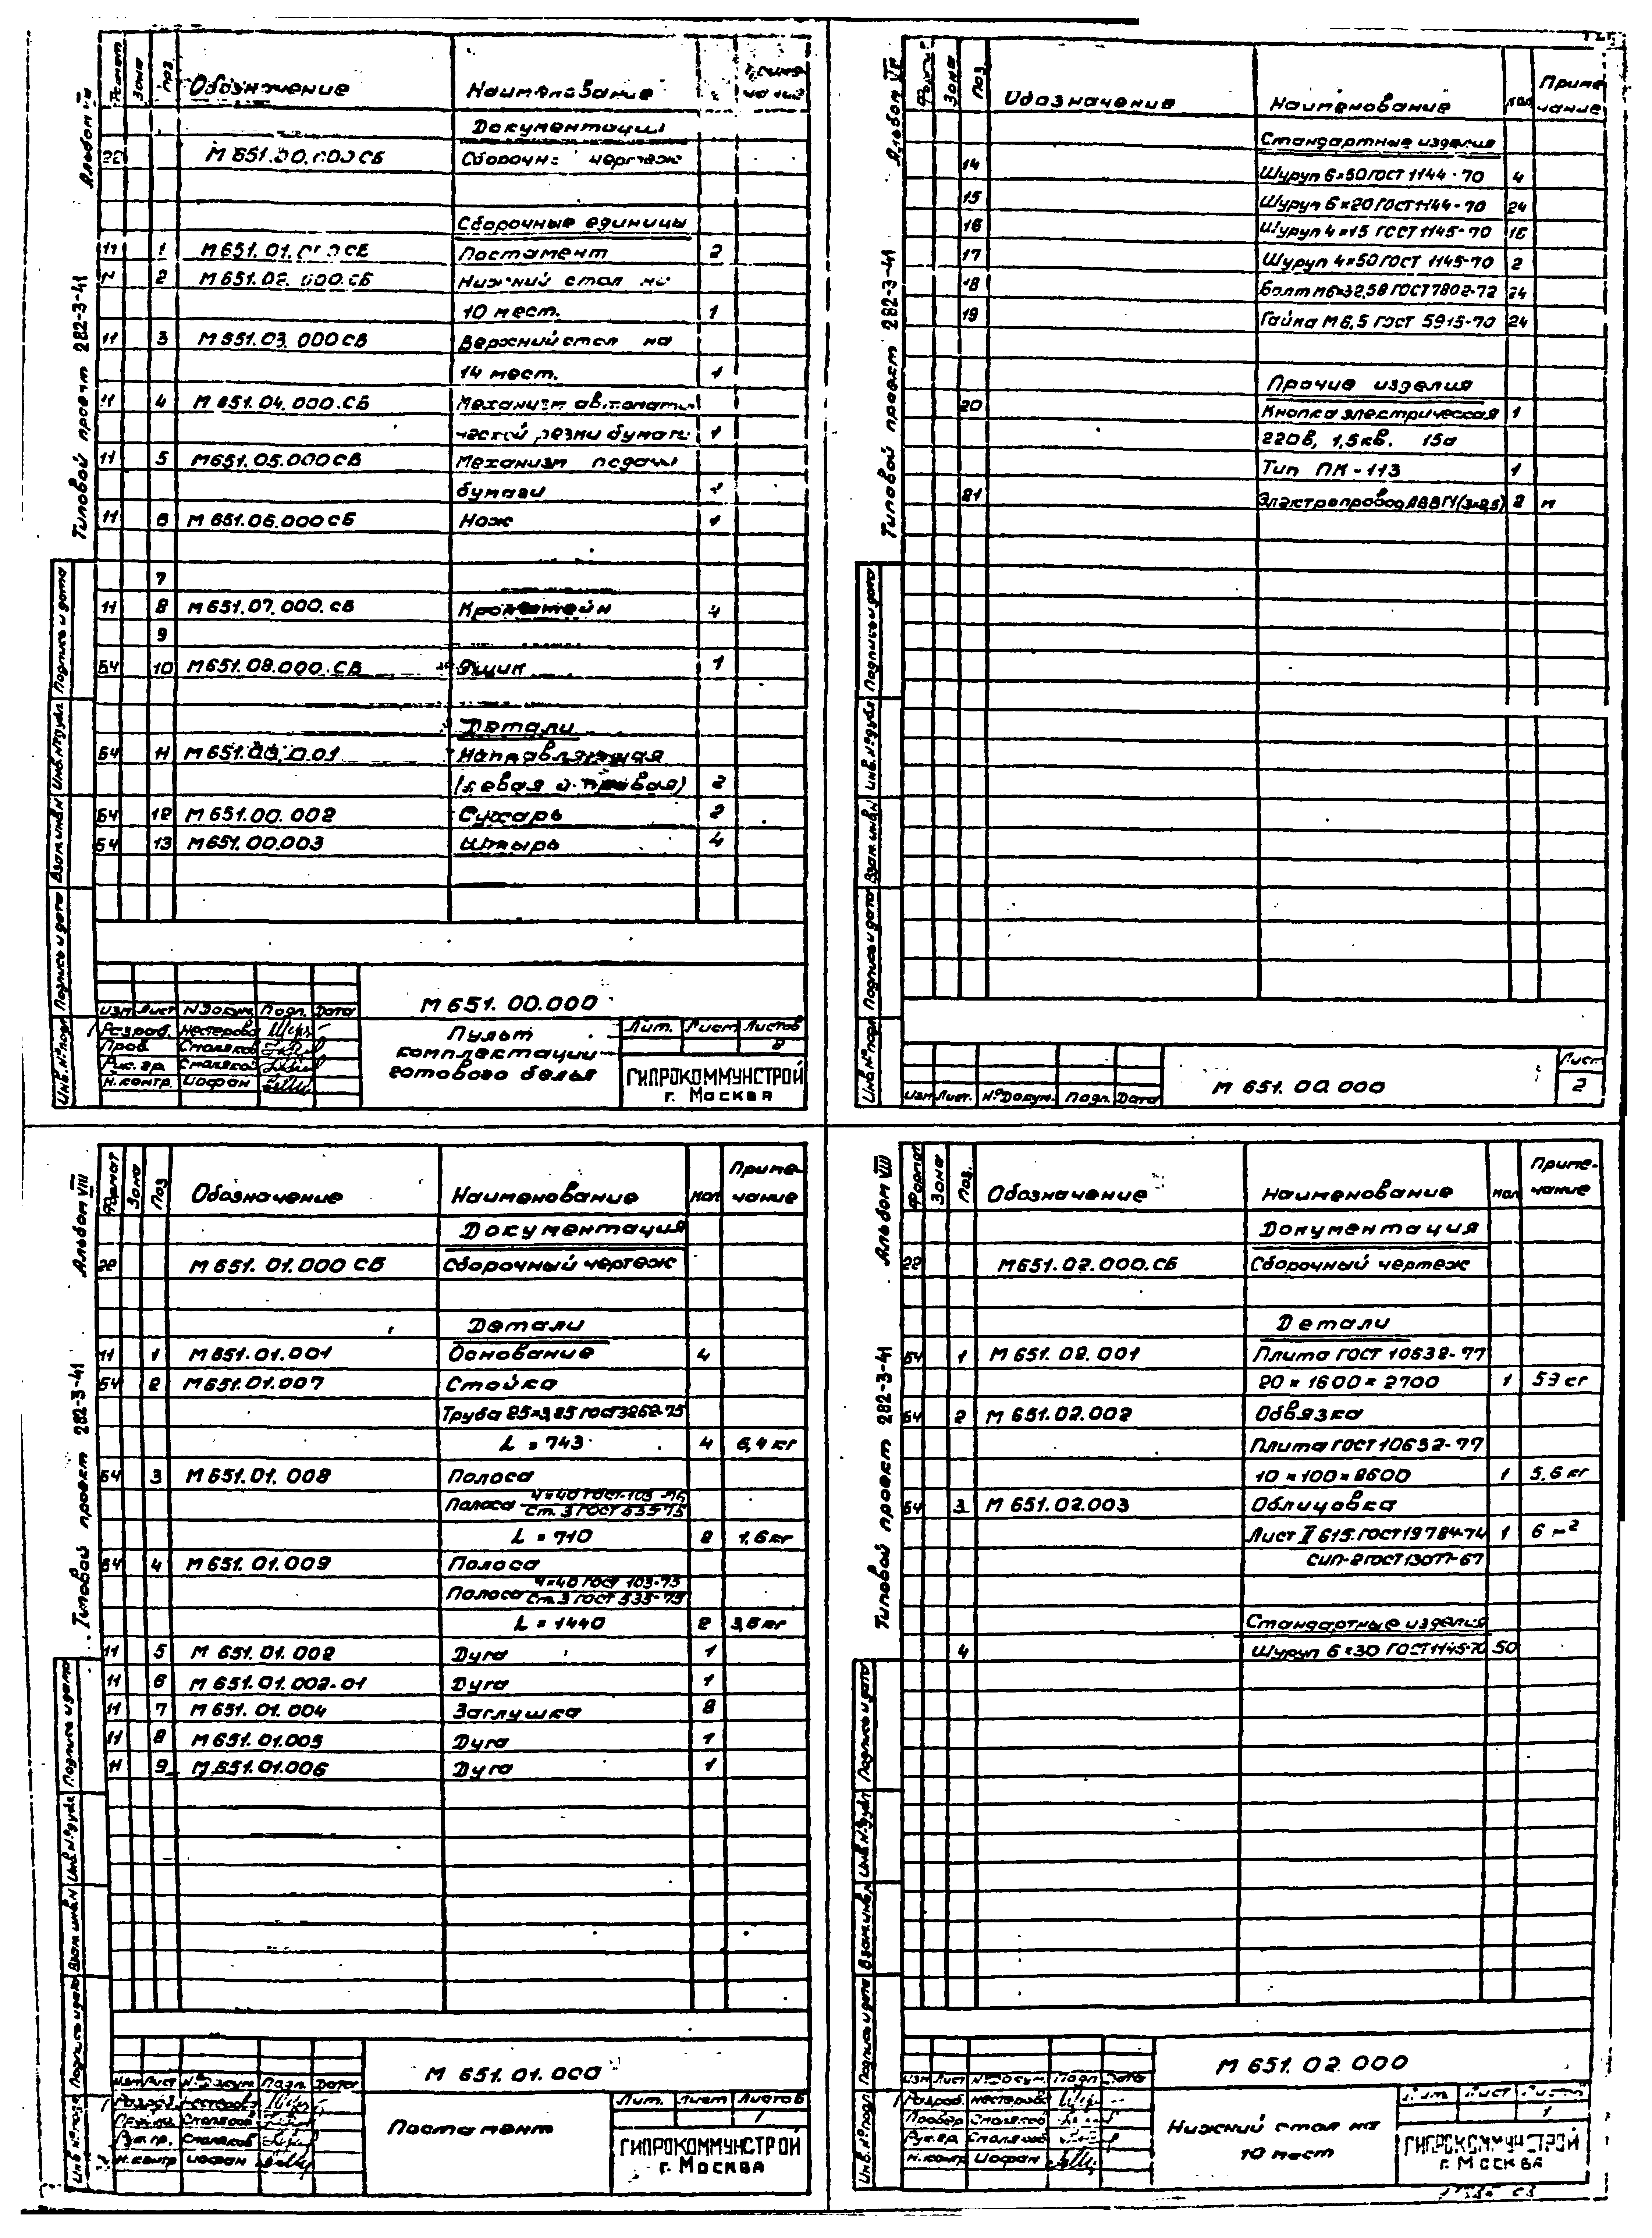 Альбом VIII
Типовой проект 282-3-41
Формат Зона Поз. Обозначение Наименование Приме-
чание
Документация
22 М 651.00.000 СБ Сборочный чертеж
Сборочные единицы
11 1 М 651.01.000 СБ Постамент 2
11 2 М 651.02.000.СБ Нижний стол на
10 мест. 1
11 3 М 651.03.000 СБ Верхний стол на
14 мест. 1
11 4 М 651.04.000.СБ Механизм автомати-
ческой резки бумаги 1
11 5 М651.05.000 СБ Механизм подачи
бумаги 1
11 6 М 651.06.000 СБ Нож 1
7
11 8 М 651.07.000.СБ Кронштейн 4
9
БЧ 10 М 651.08.000.СБ Ящик 1
Детали
БЧ 11 М 651.00.001 Направляющая
(левая и правая) 2
БЧ 12 М 651.00.002 Сухарь 2
БЧ 13 М 651.00.003 Штырь 4
Инв.№подл Подпись и дата Взам.инв.N Инв.№дубл Подпись и дата
Изм Лист N Докум. Подп. Дата
М 651.00.000
Разраб. Нестерова
Пров. Смоляков
Рук.гр. Смоляков
Н.контр. Иофан
Пульт
комплектации
готового белья
Лит. Лист Листов
2
ГИПРОКОММУНСТРОЙ
г. Москва
Альбом VIII
Типовой проект 282-3-41
Формат Зона Поз. Обозначение Наименование Кол Приме-
чание
Стандартные изделия
14 Шуруп 6×50 ГОСТ 1144-70 4
15 Шуруп 6×20 ГОСТ 1144-70 24
16 Шуруп 4×15 ГОСТ 1145-70 16
17 Шуруп 4×50 ГОСТ 1145-70 2
18 Болт М6×32,58 ГОСТ 7802-72 24
19 Гайка М6,5 ГОСТ 5915-70 24
Прочие изделия
20 Кнопка электрическая 1
220в, 1,5кв. 15а
Тип ПК-113 1
21 Электропровод АВВГ1(3×2,5) 2 м
Инв.№подл Подпись и дата Взам.инв.N Инв.№дубл Подпись и дата
Изм Лист. №Докум. Подп. Дата
М 651.00.000
Лист
2
Альбом VIII
Типовой проект 282-3-41
Формат Зона Поз Обозначение Наименование Кол Приме-
чание
Документация
22 М 651.01.000 СБ Сборочный чертеж
Детали
11 1 М 651.01.001 Основание 4
БЧ 2 М 651.01.007 Стойка
Труба 25×3,25 ГОСТ 3262-75
L = 743 4 6,4 кг
БЧ 3 М 651.01.008 Полоса
Полоса 4×40 ГОСТ 103-76
Ст.3 ГОСТ 535-75
L = 710 2 1,6 кг
БЧ 4 М 651.01.009 Полоса
Полоса 4×40 ГОСТ 103-75
Ст.3 ГОСТ 535-75
L = 1440 2 3,6 кг
11 5 М 651.01.002 Дуга 1
11 6 М 651.01.002-01 Дуга 1
11 7 М 651.01.004 Заглушка 8
11 8 М 651.01.005 Дуга 1
11 9 М 651.01.006 Дуга 1
Инв.№подл Подпись и дата Взам.инв.N Инв.№дубл Подпись и дата
Изм Лист №Докум. Подп. Дата
М 651.01.000
Разраб. Нестерова
Смоляков
Рук.гр. Смоляков
Н.контр Иофан
Постамент
Лит. Лист Листов
1
ГИПРОКОММУНСТРОЙ
г. Москва
Альбом VIII
Типовой проект 282-3-41
Формат Зона Поз. Обозначение Наименование Кол Приме-
чание
Документация
22 М 651.02.000.СБ Сборочный чертеж
Детали
БЧ 1 М 651.02.001 Плита ГОСТ 10632-77
20 × 1600 × 2700 1 53 кг
БЧ 2 М 651.02.002 Обвязка
Плита ГОСТ 10632-77
10 × 100 × 8600 1 5,6 кг
БЧ 3 М 651.02.003 Облицовка
Лист II 615.ГОСТ 19784-74 1 6 м²
СИП-2 ГОСТ 13077-67
Стандартные изделия
4 Шуруп 6×30 ГОСТ 1145-70 50
Инв.№подл Подпись и дата Взам.инв.N Инв.№дубл Подпись и дата
Изм Лист №Докум. Подп Дата
М 651.02.000
Разраб. Нестерова
Провер Смоляков
Рук.гр. Смоляков
Н.контр Иофан
Нижний стол на
10 мест
Лит. Лист Листов
1
ГИПРОКОММУНСТРОЙ
г. Москва